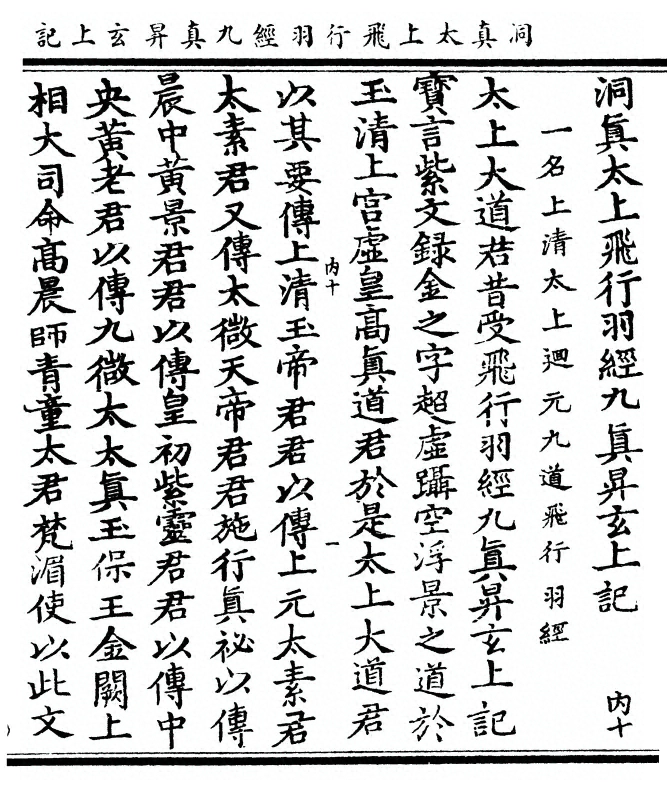 洞真太上飛行羽經九真昇玄上記
洞眞太上飛行羽經九眞昇玄上記
內十
一名上清太上迴元九道飛行羽經
太上大道君昔受飛行羽經九眞昇玄上記
寶言紫文錄金之字超虛躡空浮景之道於
玉清上宮虛皇高眞道君於是太上大道君
內十
一
以其要傳上清玉帝君君以傳上元太素君
太素君又傳太微天帝君君施行眞祕以傳
晨中黃景君君以傳皇初紫靈君君以傳中
央黃老君以傳九微太太眞玉保王金闕上
相大司命高晨師青童太君梵湄使以此文